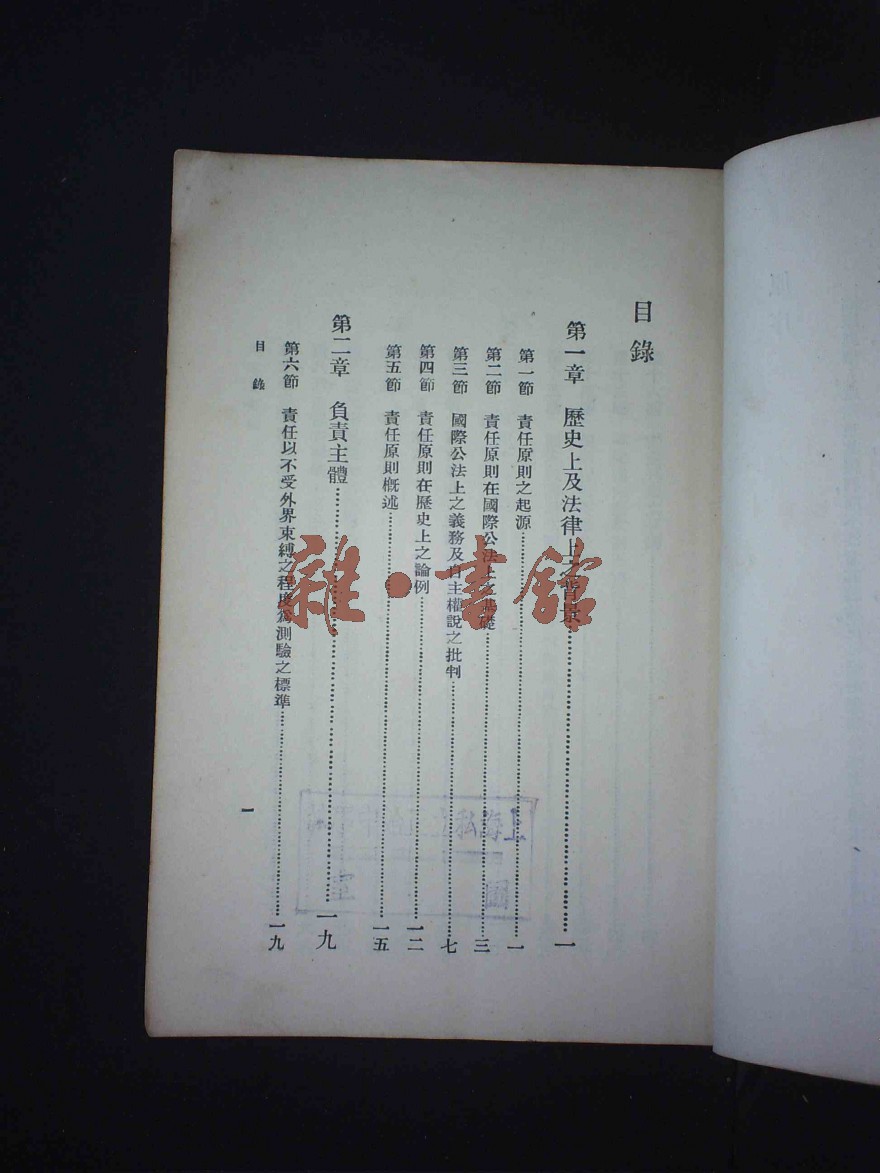 目錄
第一章　歷史上及法律上之背景……一
第一節　責任原則之起源……一
第二節　責任原則在國際公法上之基礎……三
第三節　國際公法上之義務及自主權說之批判……七
第四節　責任原則在歷史上之論例……一二
第五節　責任原則概述……一五
第二章　負責主體……一九
第六節　責任以不受外界束縛之程度為測驗之標準……一九
目錄
一
雜·書館
上海私立
圖
室